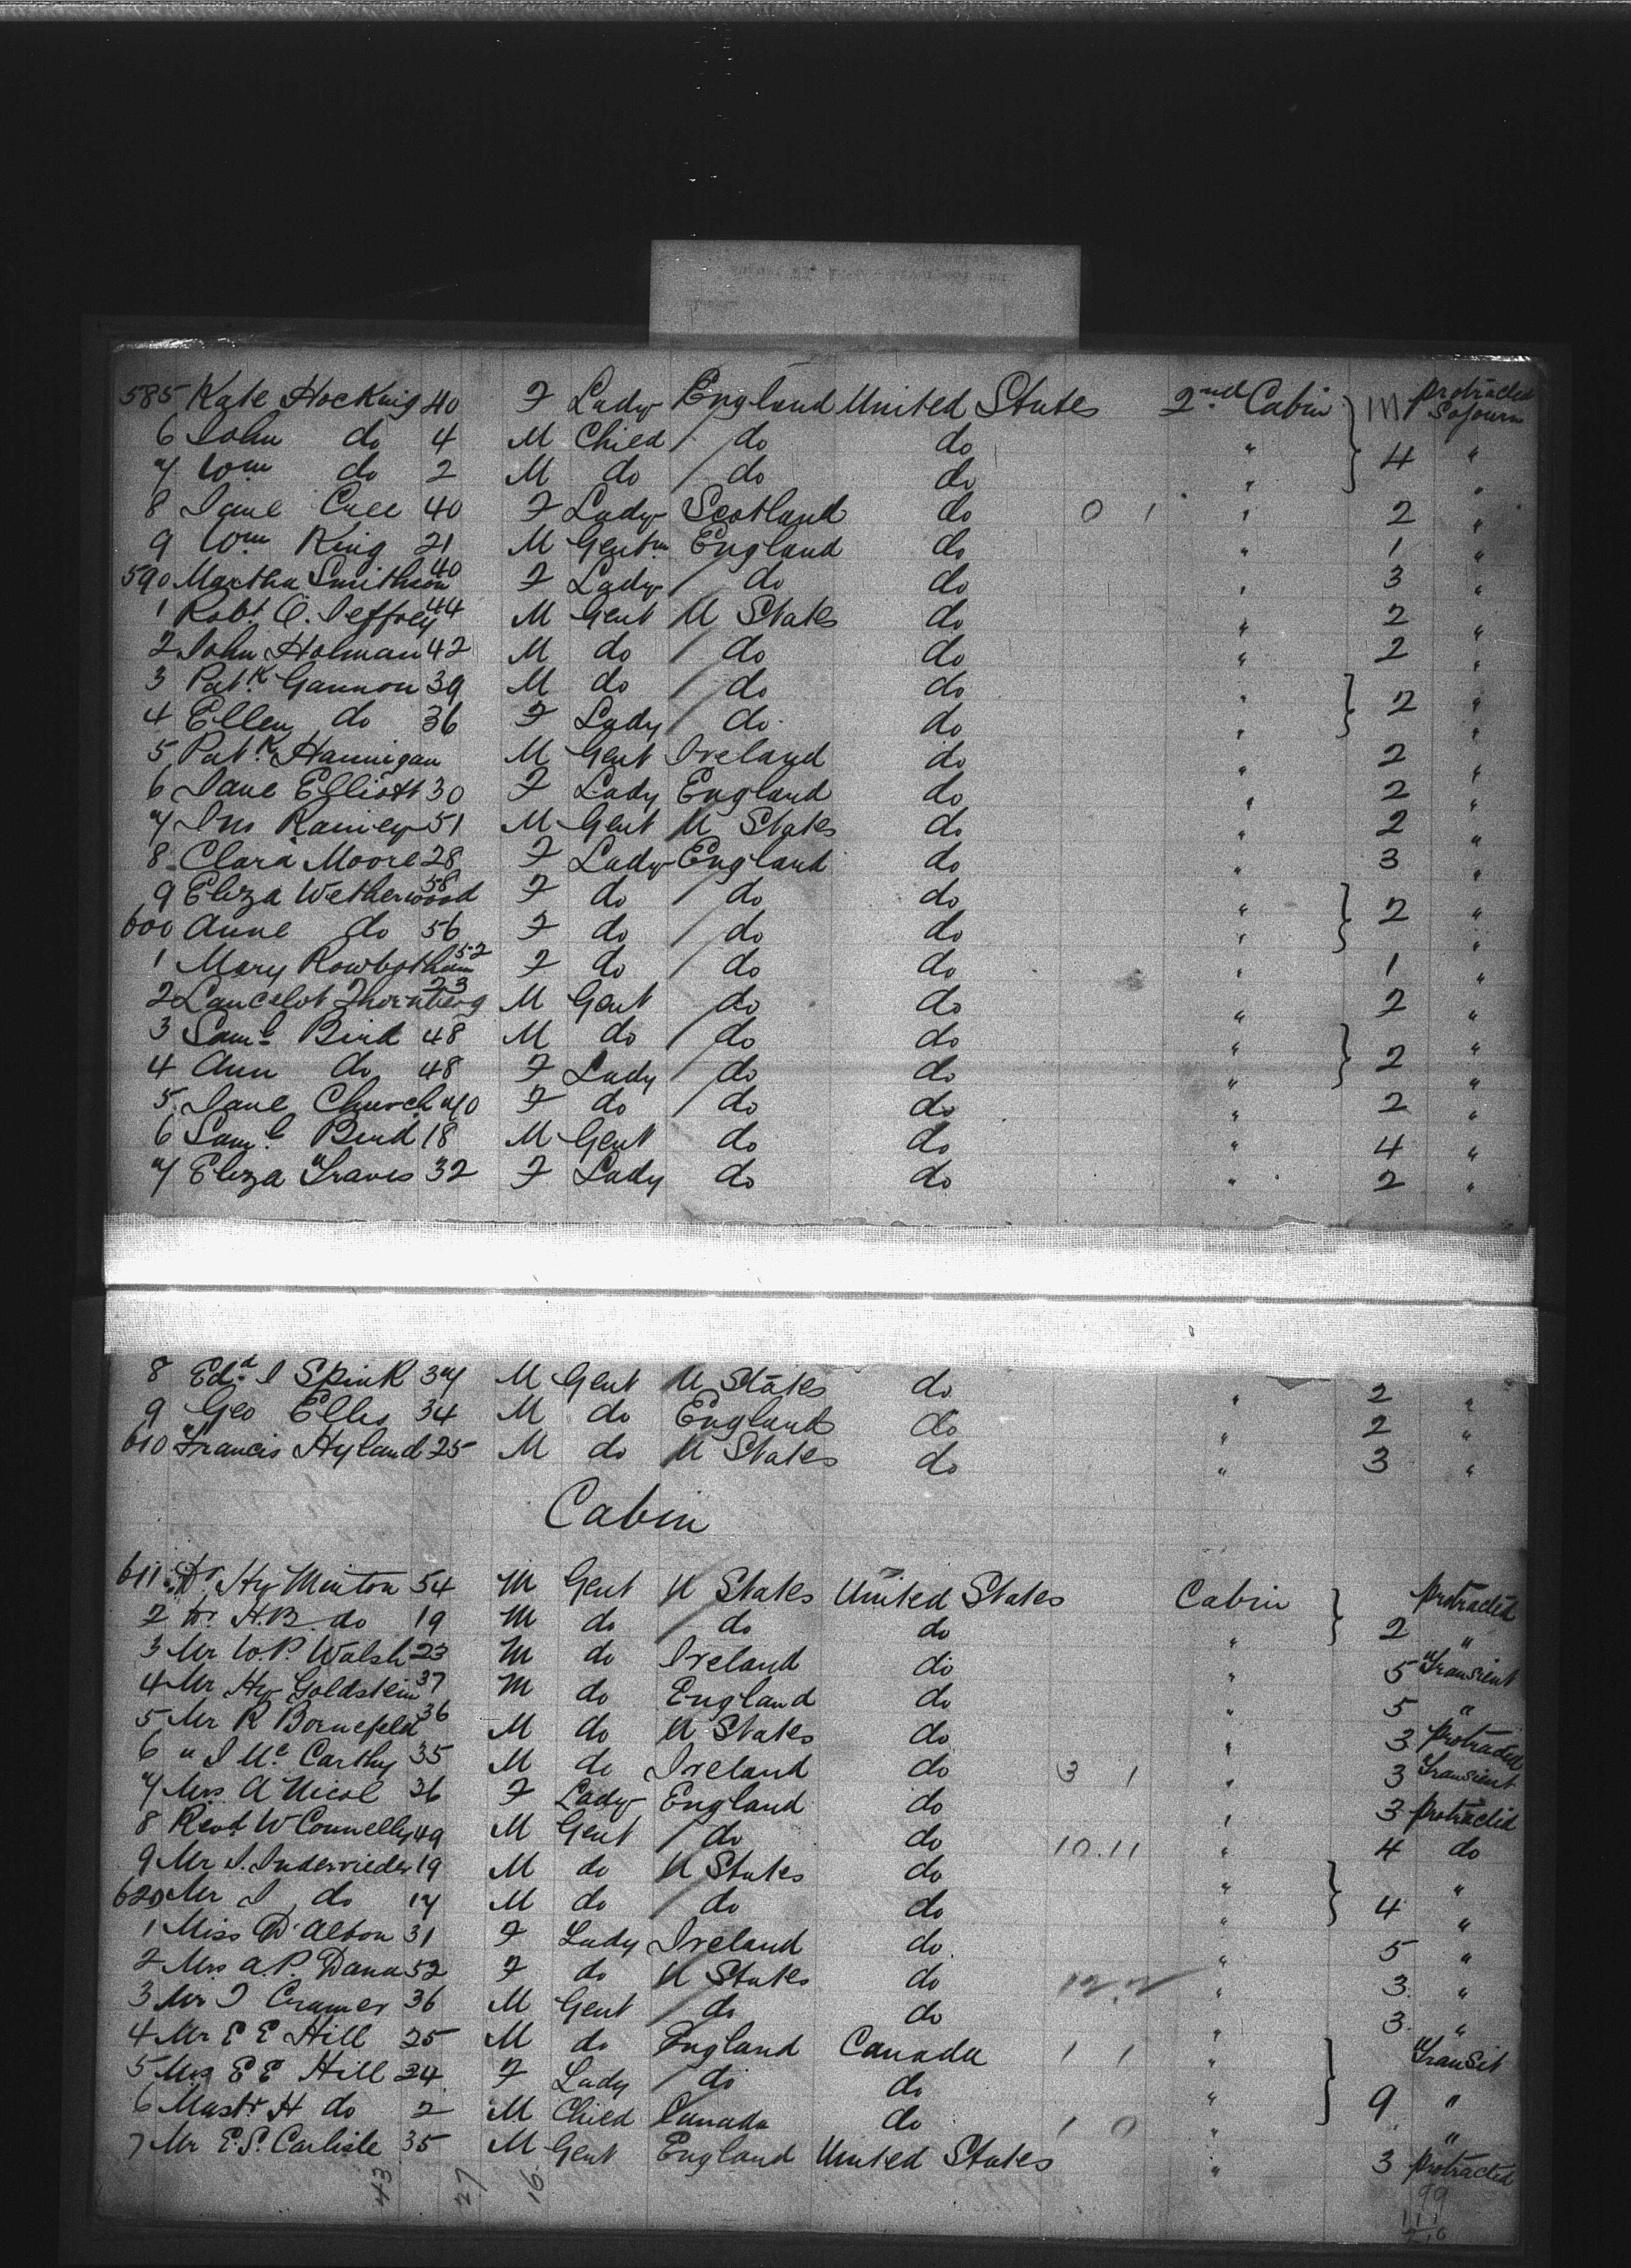 585 Kate Hocking 40 F Lady England United States 2nd Cabin 111 protracted Sojourn
6 John do 4 M Child do do " 4 "
7 Wm do 2 M do do do " "
8 Jane Cree 40 F Lady Scotland do 0 1 " 2 "
9 Wm King 21 M Gentm England do " 1 "
590 Martha Smithson 40 F Lady do do " 3 "
1 Robt O. Jeffrey 44 M Gent U States do " 2 "
2 John Holman 42 M do do do " 2 "
3 Patk Gannon 39 M do do do " 2 "
4 Ellen do 36 F Lady do do " "
5 Patk Hannigan M Gent Ireland do " 2 "
6 Jane Elliott 30 F Lady England do " 2 "
7 Jno Rainey 51 M Gent U States do " 2 "
8 Clara Moore 28 F Lady England do " 3 "
9 Eliza Wetherwood 58 F do do do " 2 "
600 Anne do 56 F do do do " "
1 Mary Rowbotham 52 F do do do " 1 "
2 Lancelot Thornberg 23 M Gent do do " 2 "
3 Saml Bird 48 M do do do " 2 "
4 Ann do 48 F Lady do do " "
5 Jane Church 40 F do do do " 2 "
6 Saml Bird 18 M Gent do do " 4 "
7 Eliza Travis 32 F Lady do do " 2 "
8 Edd J Spink 37 M Gent U States do " 2 "
9 Geo Ellis 34 M do England do " 2 "
610 Francis Hyland 25 M do U States do " 3 "
Cabin
611 Dr. Hy Minton 54 M Gent U States United States Cabin protracted
2 Dr. H.B. do 19 M do do do " 2 "
3 Mr W.P. Walsh 23 M do Ireland do " 5 Transient
4 Mr Hy Goldstein 37 M do England do " 5 "
5 Mr R Bornefeld 36 M do U States do " 3 Protracted
6 " J McCarthy 35 M do Ireland do 3 1 " 3 Transient
7 Mrs A Nicol 36 F Lady England do " 3 Protracted
8 Revd W Connelly 49 M Gent do do 10.11 " 4 do
9 Mr J. Inderrieder 19 M do U States do " "
620 Mr J do 17 M do do do " 4 "
1 Miss D'Alton 31 F Lady Ireland do " 5 "
2 Mrs A.P. Dana 52 F do U States do " 3 "
3 Mr J Cramer 36 M Gent do do " 3 "
4 Mr E E Hill 25 M do England Canada 1 1 " Transit
5 Mrs E E Hill 24 F Lady do do " 9 "
6 Mastr H do 2 M Child Canada do 1 0 " "
7 Mr E.S. Carlisle 35 M Gent England United States " 3 protracted
43 27 16 99
111